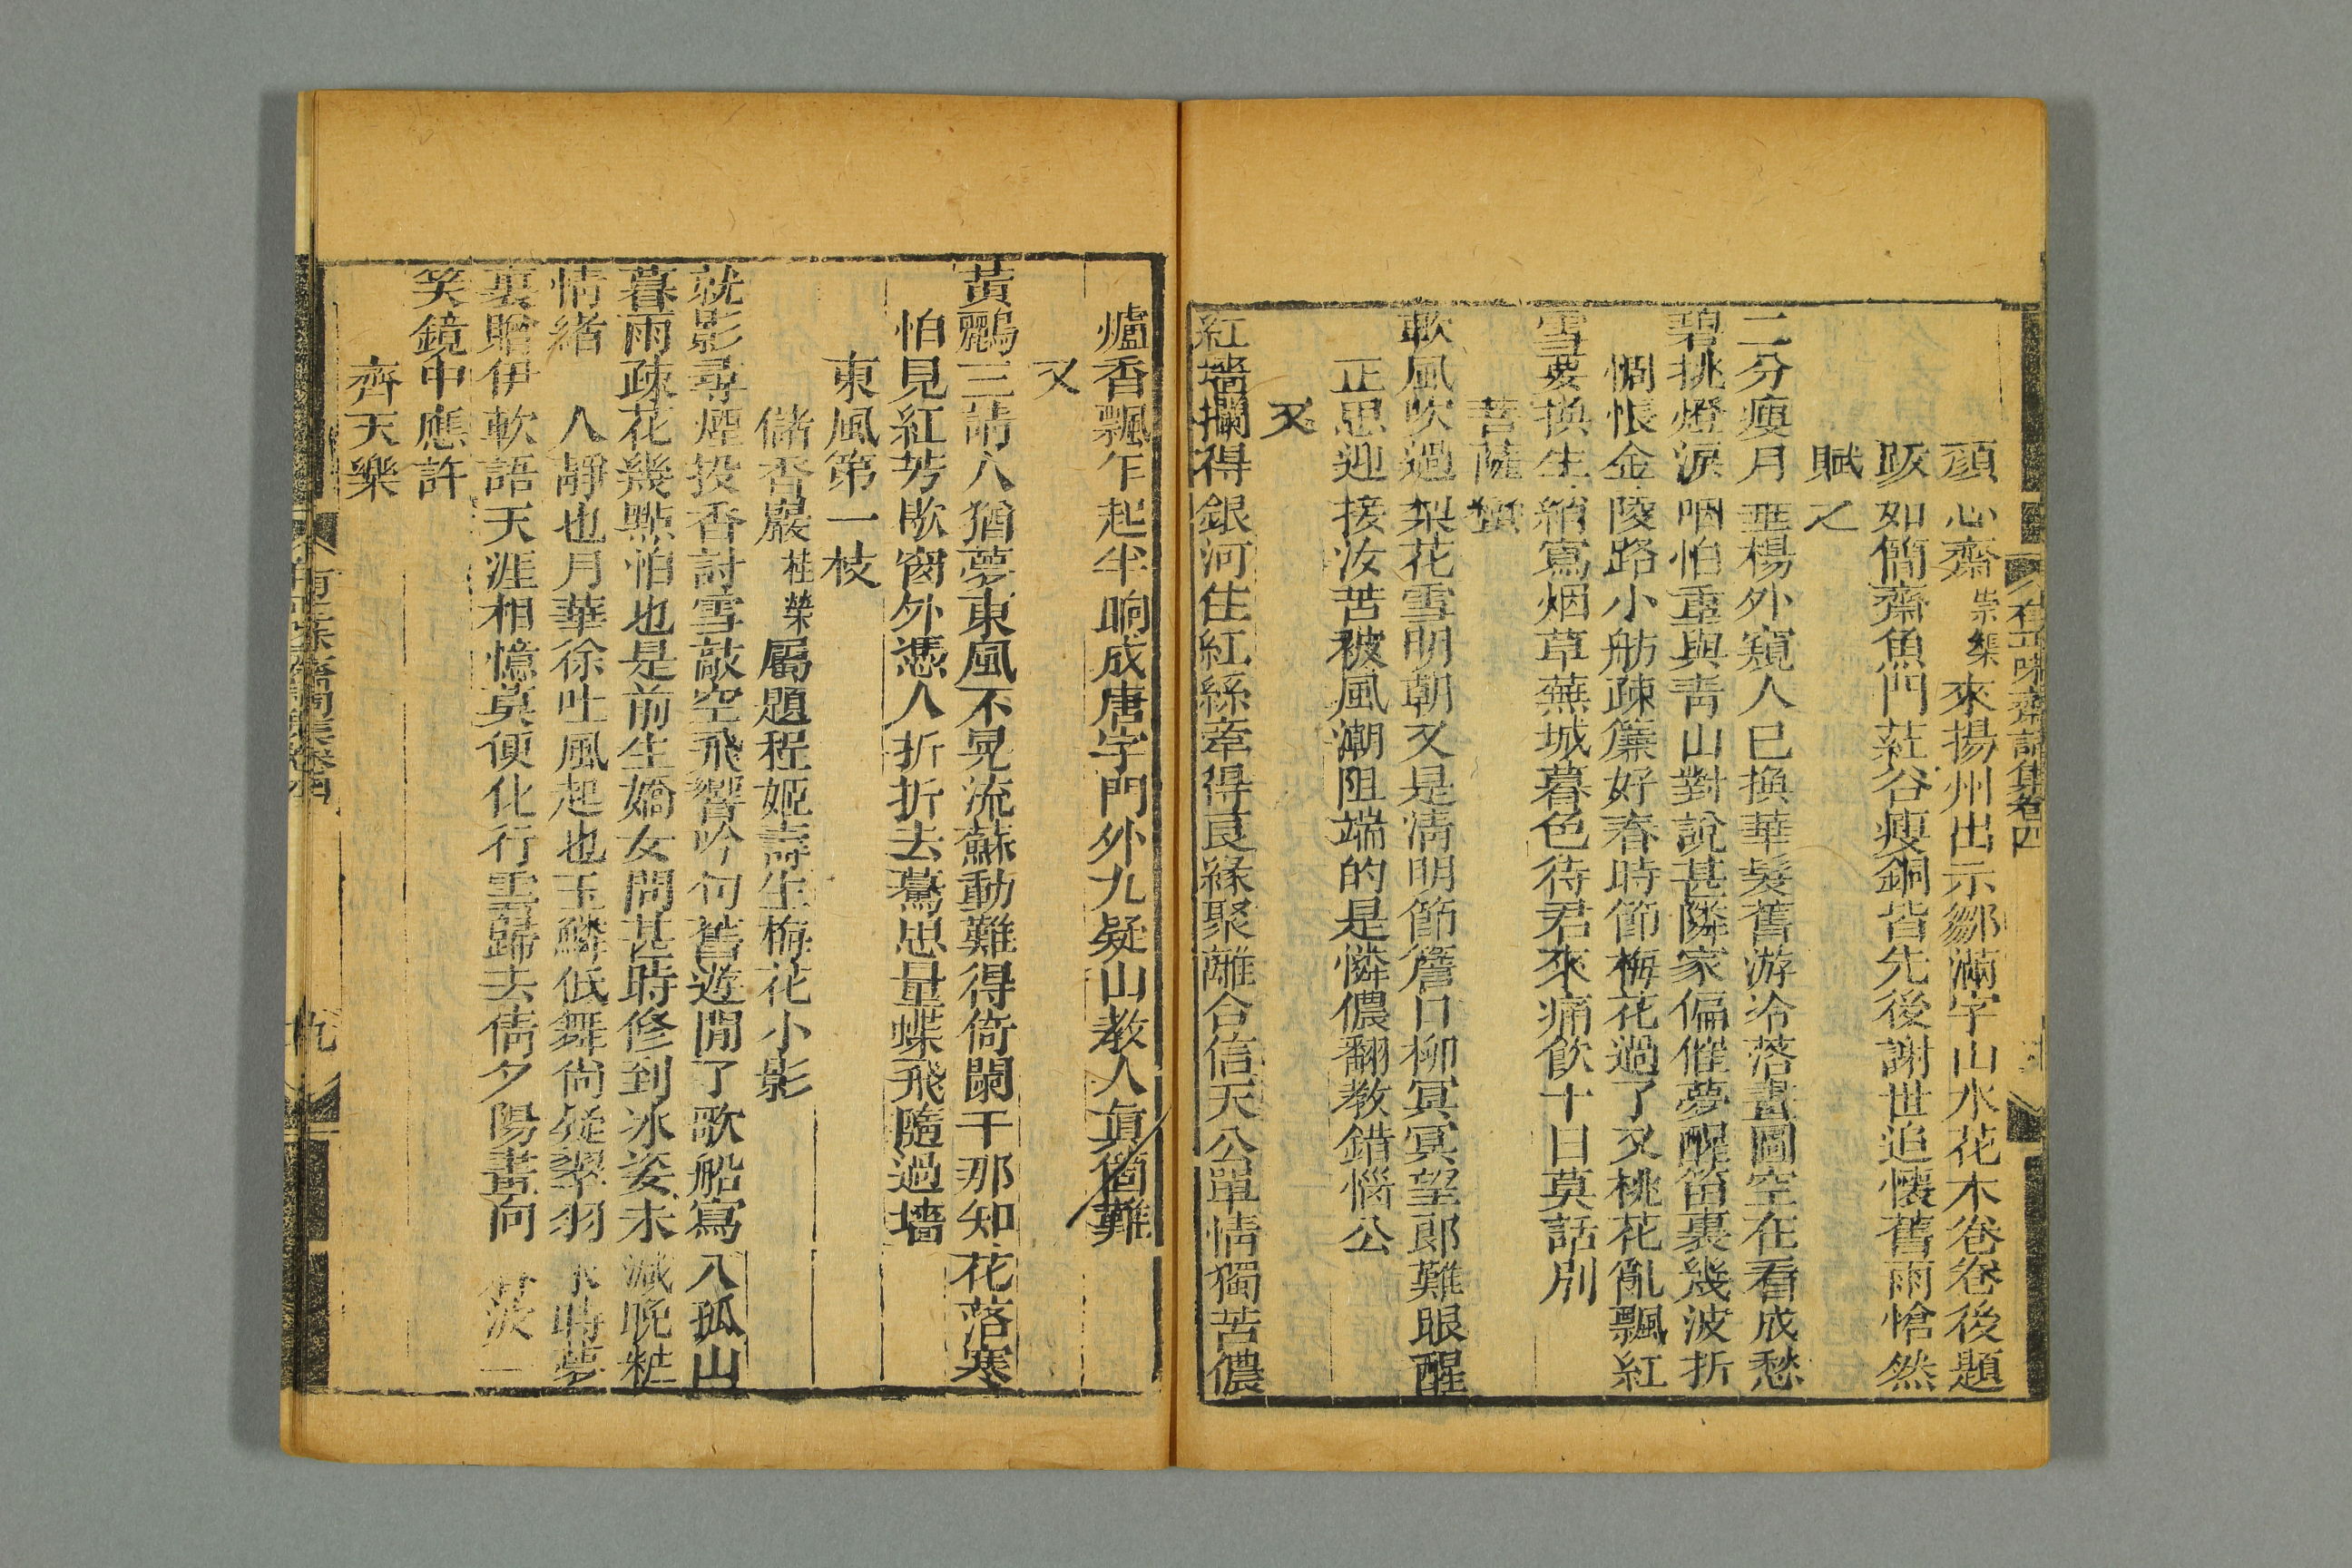 有正味齋詞集卷四
顔心齋崇榘來揚州出示鄒滿字山水花木卷卷後題
䟦如簡齋魚門葒谷瘦銅皆先後謝世追懷舊雨愴然
賦之
二分瘦月垂楊外窺人已換華髮舊游冷落畫圖空在看成愁
碧挑燈淚咽怕重與靑山對說甚隣家偏催夢醒笛裏幾波折
惆悵金陵路小舫疎簾好春時節梅花過了又桃花亂飄紅
雪要換生綃寫烟草蕪城暮色待君來痛飮十日莫話別
菩薩蠻
軟風吹過梨花雪明朝又是淸明節簷口柳冥冥望郎難眼醒
正思迎接汝苦被風潮阻端的是憐儂翻教錯惱公
又
紅墻攔得銀河住紅絲牽得良緣聚離合信天公單情獨苦儂
爐香飄乍起半晌成唐字門外九疑山教人眞箇難
又
黃鸝三請八猶夢東風不見流蘇動難得倚闌干那知花落寒
怕見紅芳歇窗外憑人折折去驀思量蝶飛隨過墻
東風第一枝
儲香嚴桂榮屬題程姬壽生梅花小影
就影尋煙投香討雪敲空飛響吟句舊遊閒了歌船寫八孤山
暮雨疎花幾點怕也是前生嬌女問甚時修到冰姿未減晚粧
情緖 人靜也月華徐吐風起也玉鱗低舞尙疑翠羽 時夢
裏贈伊軟語天涯相憶莫便化行雲歸去倩夕陽畫向 淡一
笑鏡中應許
齊天樂
有正味齋詞集卷四
九